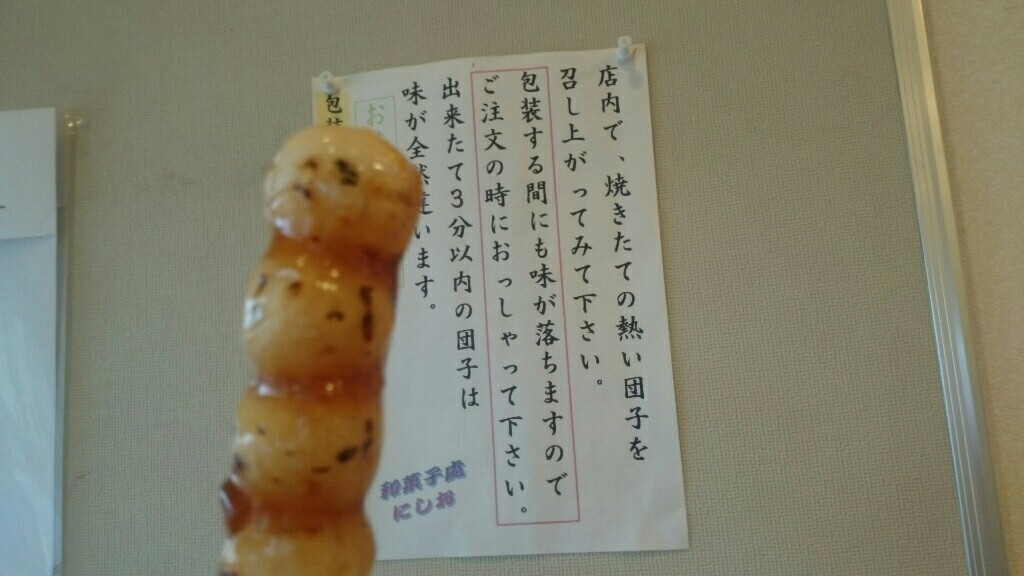 店内で、焼きたての熱い団子を
召し上がってみて下さい。
包装する間にも味が落ちますので
ご注文の時におっしゃって下さい。
出来たて3分以内の団子は
味が全然違います。
お
包
和菓子處
にしお